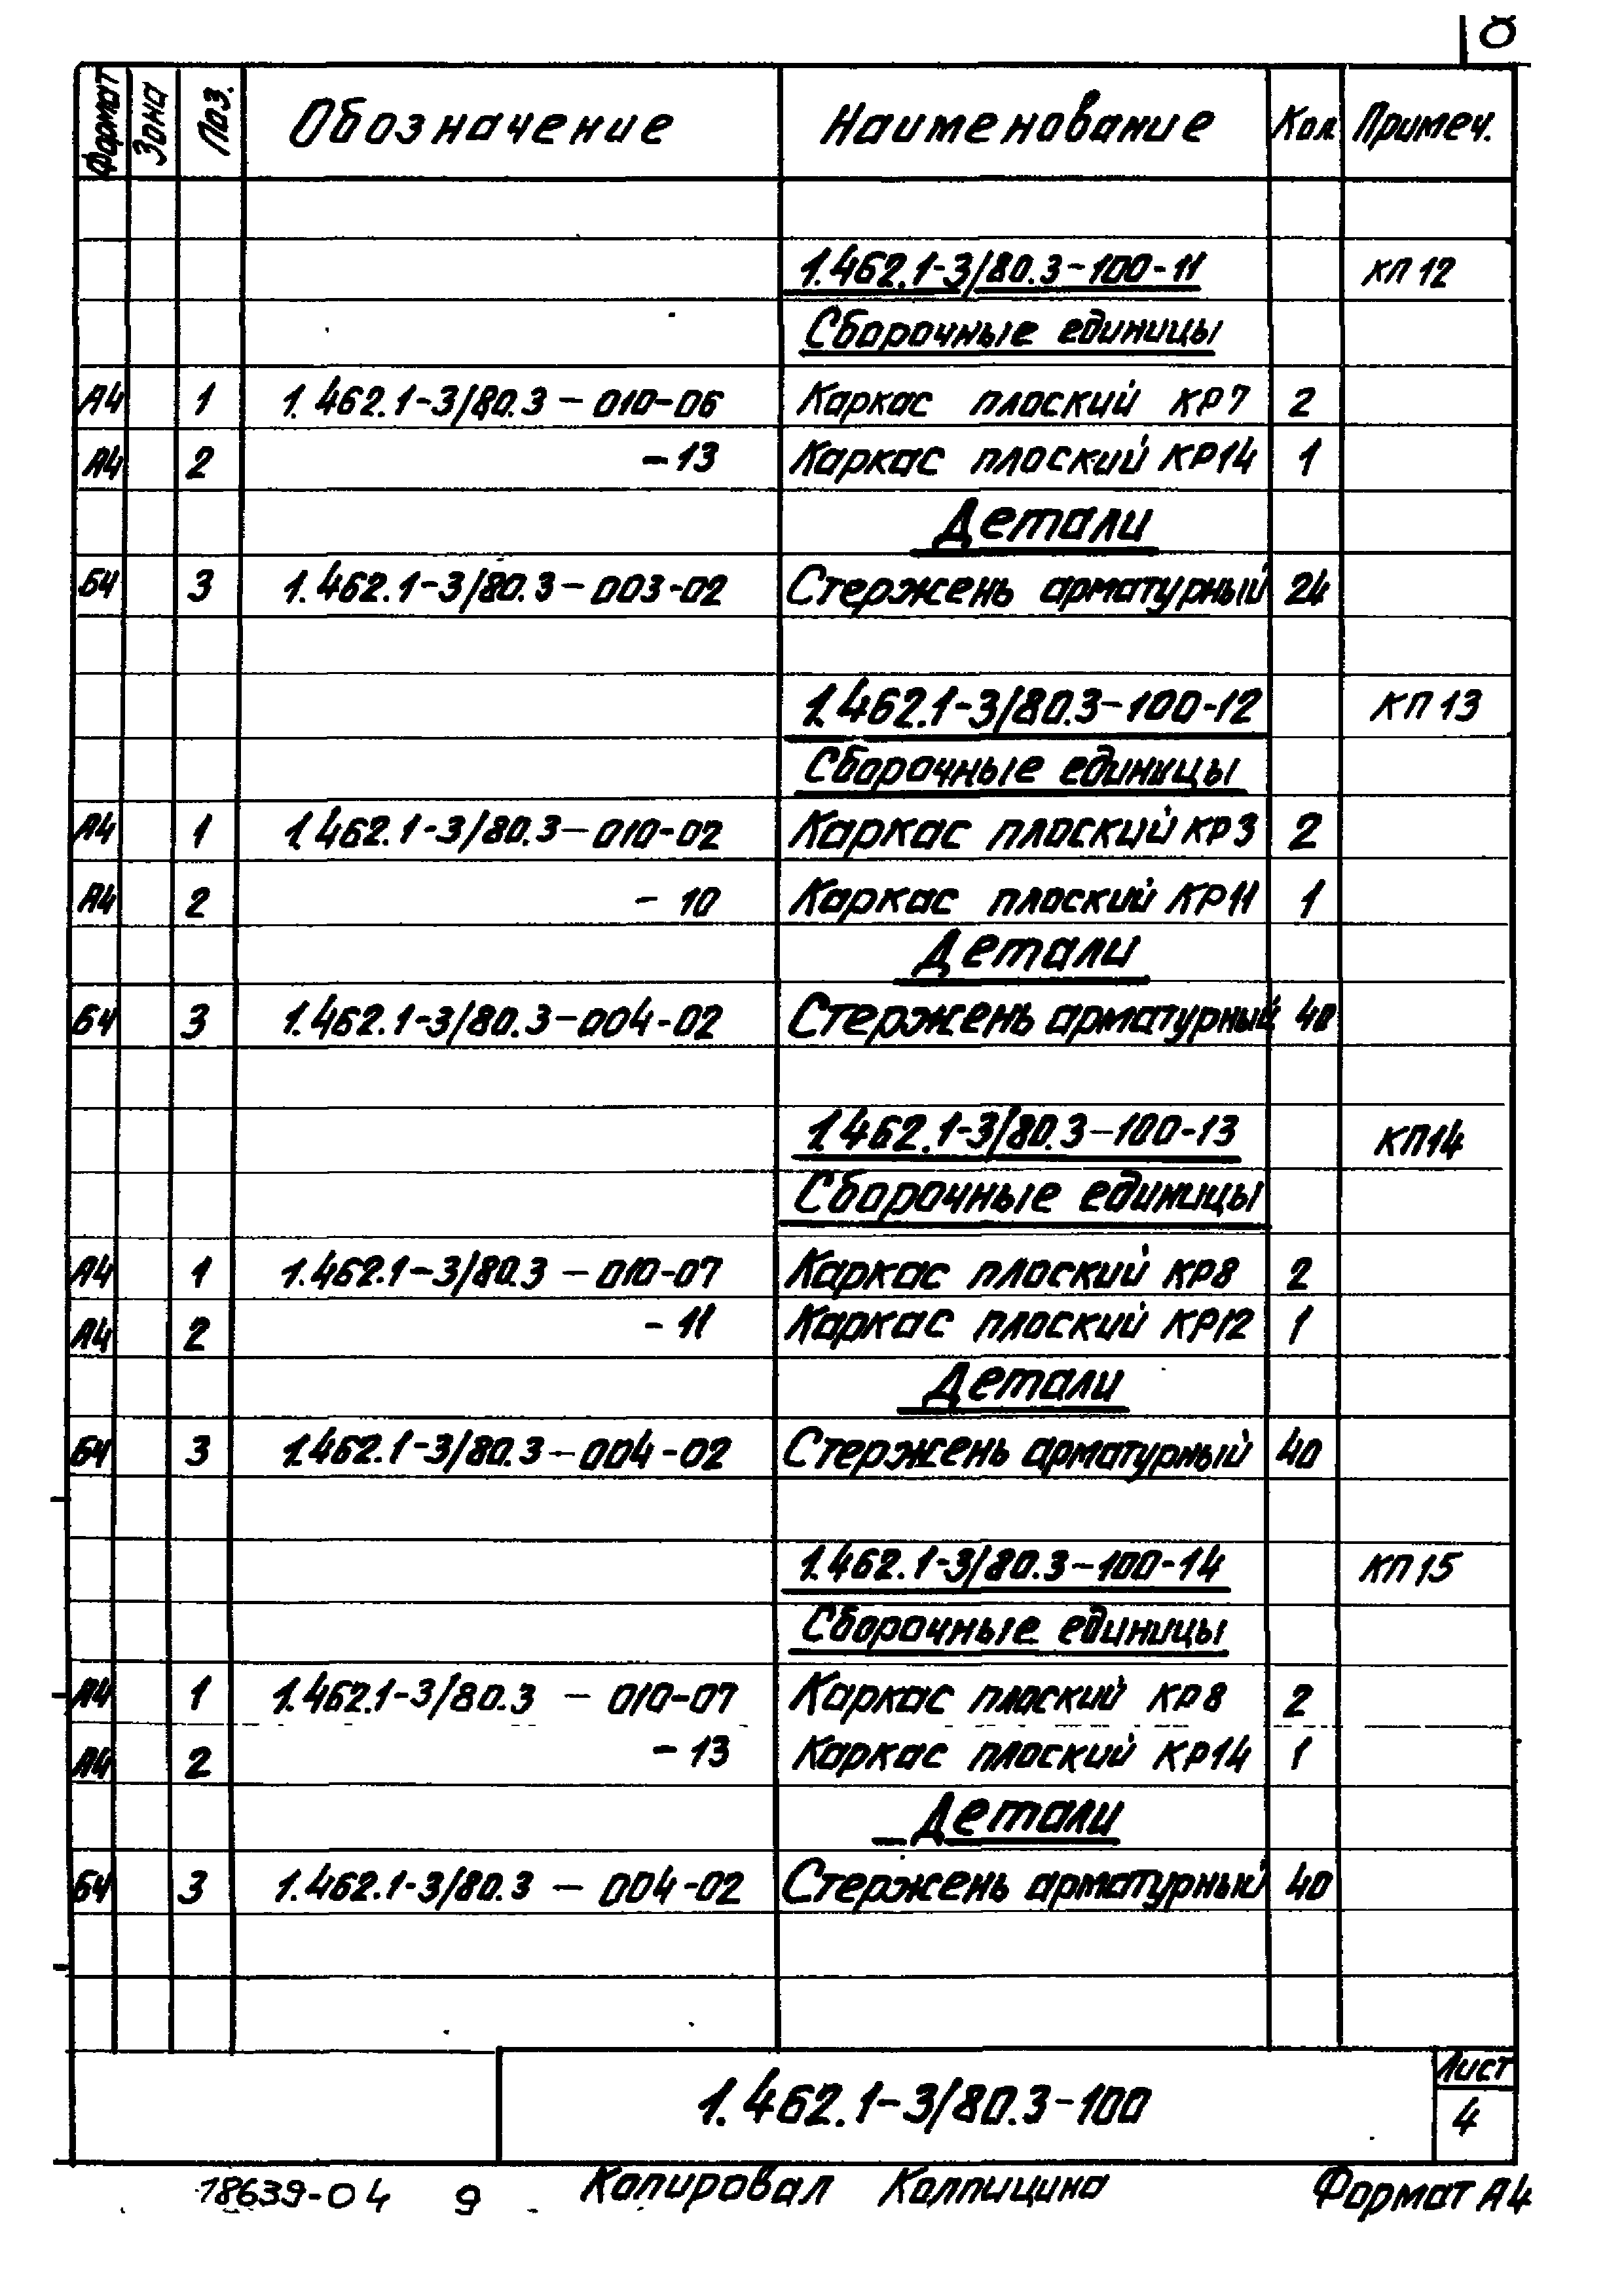 8
Формат Зона Поз. Обозначение Наименование Кол Примеч.
1.462.1-3/80.3-100-11 КП 12
Сборочные единицы
А4 1 1.462.1-3/80.3-010-06 Каркас плоский КР7 2
А4 2 -13 Каркас плоский КР14 1
Детали
БЧ 3 1.462.1-3/80.3-003-02 Стержень арматурный 24
1.462.1-3/80.3-100-12 КП 13
Сборочные единицы
А4 1 1.462.1-3/80.3-010-02 Каркас плоский КР3 2
А4 2 -10 Каркас плоский КР11 1
Детали
БЧ 3 1.462.1-3/80.3-004-02 Стержень арматурный 40
1.462.1-3/80.3-100-13 КП14
Сборочные единицы
А4 1 1.462.1-3/80.3-010-07 Каркас плоский КР8 2
А4 2 -11 Каркас плоский КР12 1
Детали
БЧ 3 1.462.1-3/80.3-004-02 Стержень арматурный 40
1.462.1-3/80.3-100-14 КП 15
Сборочные единицы
А4 1 1.462.1-3/80.3-010-07 Каркас плоский КР8 2
А4 2 -13 Каркас плоский КР14 1
Детали
БЧ 3 1.462.1-3/80.3-004-02 Стержень арматурный 40
1.462.1-3/80.3-100 Лист
4
18639-04 9 Копировал Колпицина Формат А4